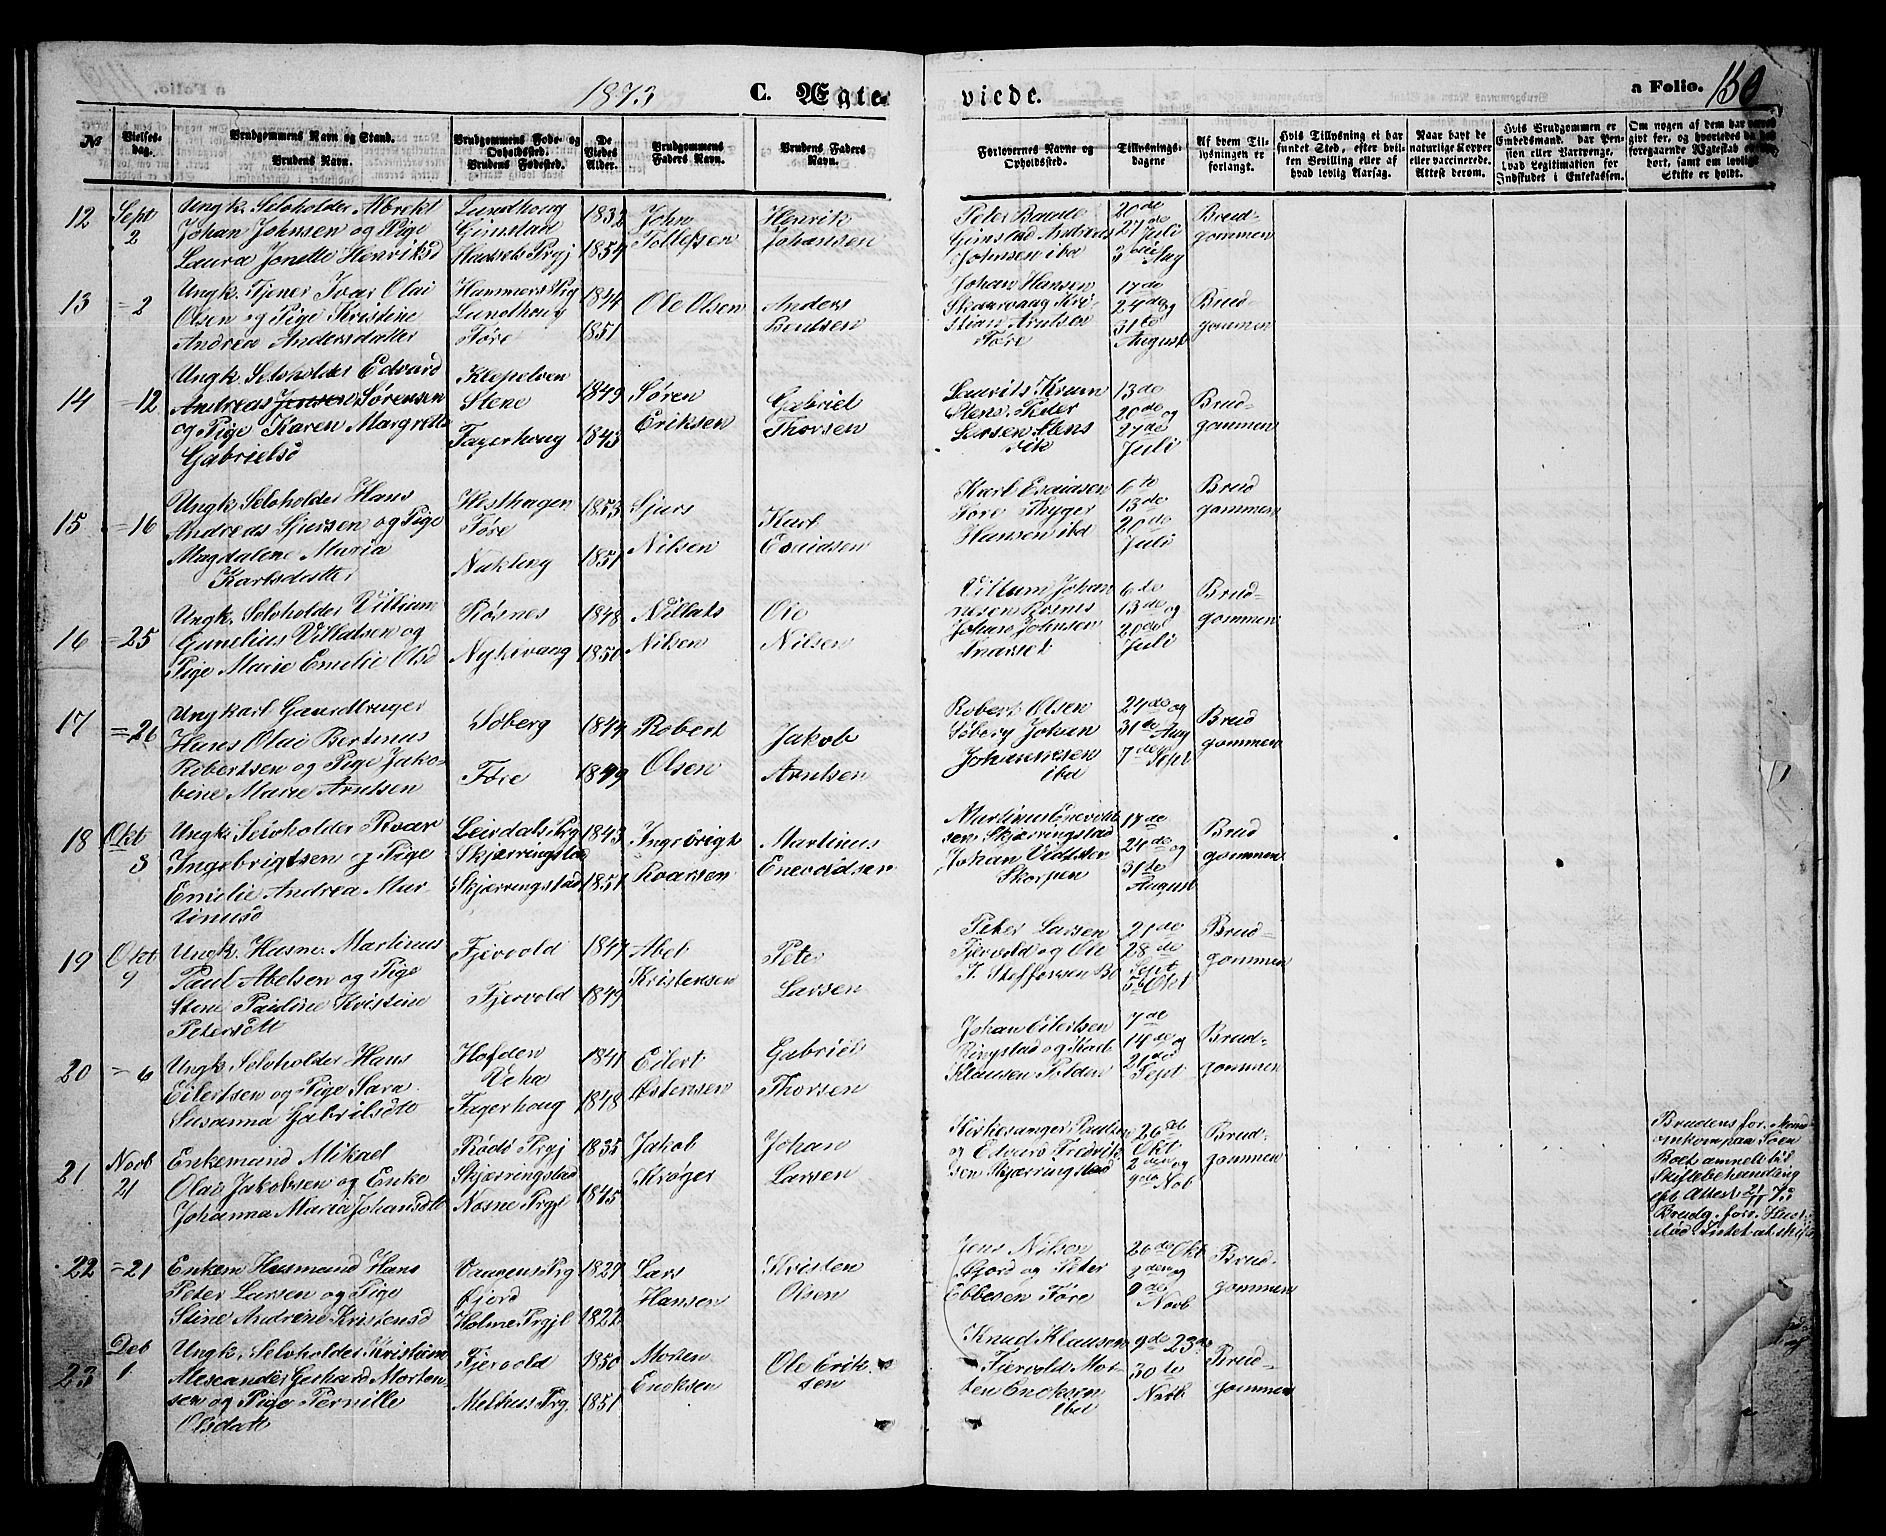 1873 C. Ægte viede. a Folio. 150
№
Vielses-
dag.
Brudgommens Navn og Stand.
Brudens Navn.
Brudgommens Føde- og
Opholdssted.
Brudens Fødested.
De
Viedes
Alder.
Brudgommens
Faders Navn.
Brudens Faders
Navn.
Forlovernes Navne og
Opholdssted.
Tillysnings-
dagene.
Af hvem Til-
lysningen er
forlangt.
Hvis Tillysning ei har
fundet Sted, efter hvil-
ken Bevilling eller af
hvad lovlig Aarsag.
Naar havt de
naturlige Kopper
eller vaccinerede.
Attest derom.
Hvis Brudgommen er
Embedsmand, har Pen-
sion eller Vartpenge,
hvad Legitimation for
Indskudet i Enkekassen.
Om nogen af dem har været
gift før, og hvorledes da det
foregaaende Ægteskab er
hævet, samt om lovligt
Skifte er holdt.
12 Sept 2
Ungk. Selvholder Albrekt
Johan Johnsen og Pige
Laura Jonette Henriksd
Lundhoug
Grimstad
Hadsels Prgj
1832
1854
John
Tollefsen
Henrik
Johansen
Peter
Grimstad Andreas
Johnsen ibd
20de
27de Juli
3die Aug
Brud-
gommen
13 = 2
Ungk. Tjener Ivar Olai
Olsen og Pige Kristine
Andrea Andersdatter
Hammers Prg
Lundhoug
Føre
1844
1851
Ole Olsen
Anders
Bentsen
Johan Hansen
Skaarvaag Kri-
stian Arntsen
Føre
17de
24de og
31te
August
Brud-
gommen
14 = 12
Ungk. Selvholder Edvard
Andreas Jensen Sørensen
og Pige Karen Margrethe
Gabrielsd
Klepelven
Stene
Fagerhoug
1849
1843
Søren
Eriksen
Gabriel
Thorsen
Laurits Krum
Stene Peder
Larsen Stens
vik
13de
20de og
27de
Juli
Brud-
gommen
15 = 16
Ungk. Selvholder Hans
Andreas Sjursen og Pige
Magdalene Maria
Karlsdatter
Hesthagen
Føre
Nykleng
1853
1851
Sjurs
Nilsen
Karl
Esaiasen
Karl Esaiasen
Føre Thyger
Hansen ibd
6te
13de
20de
Juli
Brud
gommen
16 = 25
Ungk. Selvholder Villum
Gunelius Villatsen og
Pige Marie Emelie Olsd
Røsnes
Nykvaag
1848
1850
Villats
Nilsen
Ole
Nilsen
Villum Johan
nesen Røsnes
Johan Johnsen
6de
13de og
20de
Juli
Brud-
gommen
17 = 26
Ungkarl Gaardbruger
Hans Olai Bertinus
Robertsen og Pige Jako-
bine Marie Arntsen
Søberg
Føre
1844
1849
Robert
Olsen
Jakob
Arntsen
Robert Olsen
Søberg Johan
Johannesen
ibd
24de og
31te Aug
7de Sept
Brud
gommen
18 Okt 3
Ungk. Selvholder Roar
Ingebrigtsen og Pige
Emelie Andrea Mar
tinusd
Leirdals Prg
Skjærringstad
Skjærringstad
1843
1851
Ingebrigt
Roarsen
Martinus
Enevoldsen
Martinus Enevold
sen Skjærringstad
Johan
Skorpen
17de
24de og
31te
August
Brud
gommen
19 Okt 9
Ungk. Husm. Martinus
Paul Abelsen og Pige
Stine Pauline Kristine
Petersdtt
Fjærvold
Fjervold
1847
1849
Abel
Kristensen
Peter
Larsen
Peter Larsen
Fjervold og Ole
J. Steffensen Bø
21de
28de
Sept
5te Okt
Brud-
gommen
20 = 6
Ungk. Selvholder Hans
Eilertsen og Pige Sara
Susanna Gabrilsdtt
Hofden
Veha
Fagerhoug
1841
1848
Eilert
Østensen
Gabriel
Thorsen
Johan Eilertsen
Ringstad og Karl
Klausen Polden
7de
14de og
21de
Sept
Brud-
gommen
21 Novb 21
Enkemand Mikael
Olai Jakobsen og Enke
Johanna Maria Johansdtt
Rødø Prgj
Skjærringstad
Næsne Prgjl
1835
1845
Jakob
Krøger
Johan
Larsen
Kirkesanger Paulsen
og Edvard Fredrik
sen Skjærringstad
26de
Okt
2den og
9de Nob
Brud-
gommen
Brudens for. Mand
omkom paa Søen
Boet anmeldt til
Skiftebehandling
eft Attest 21/11 73
Brudg. forr. Hust
død Intet at skifte
22 = 21
Enkem Husmand Hans
Peter Larsen og Pige
Stine Andrine Kristensd
Vaagens Prg
Gjerd
Holme Prgjl
1827
1822
Lars
Hansen
Kristen
Olsen
Jens Nilsen
Gjord og Peter
Ebbesen Føre
26de Okt
og
9de
Novb
Brud-
gommen
23 Deb 1
Ungk. Selvholder Kristian
Alexander Gerhard Morten-
sen og Pige Pernille
Olsdatt
Fjervold
Melhus Prg.
1850
1851
Morten
Enoksen
Ole Erik
sen
Knud Klausen
Fjervold Mor-
ten Enoksen
ibd
9de 23de
30te
Novb
Brud-
gommen